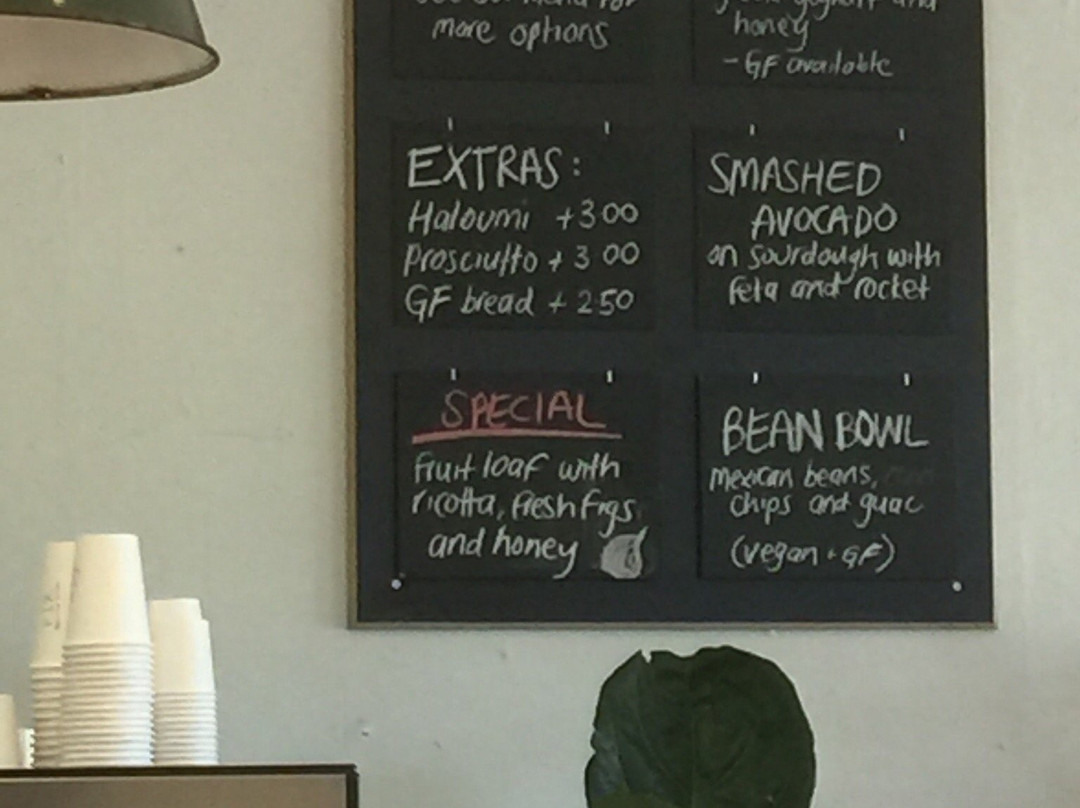 more options
honey
- GF available
EXTRAS:
Haloumi +3.00
Prosciutto + 3.00
GF bread + 2.50
SMASHED
AVOCADO
on sourdough with
feta and rocket
SPECIAL
fruit loaf with
ricotta, fresh figs
and honey
BEAN BOWL
mexican beans,
chips and guac
(vegan + GF)